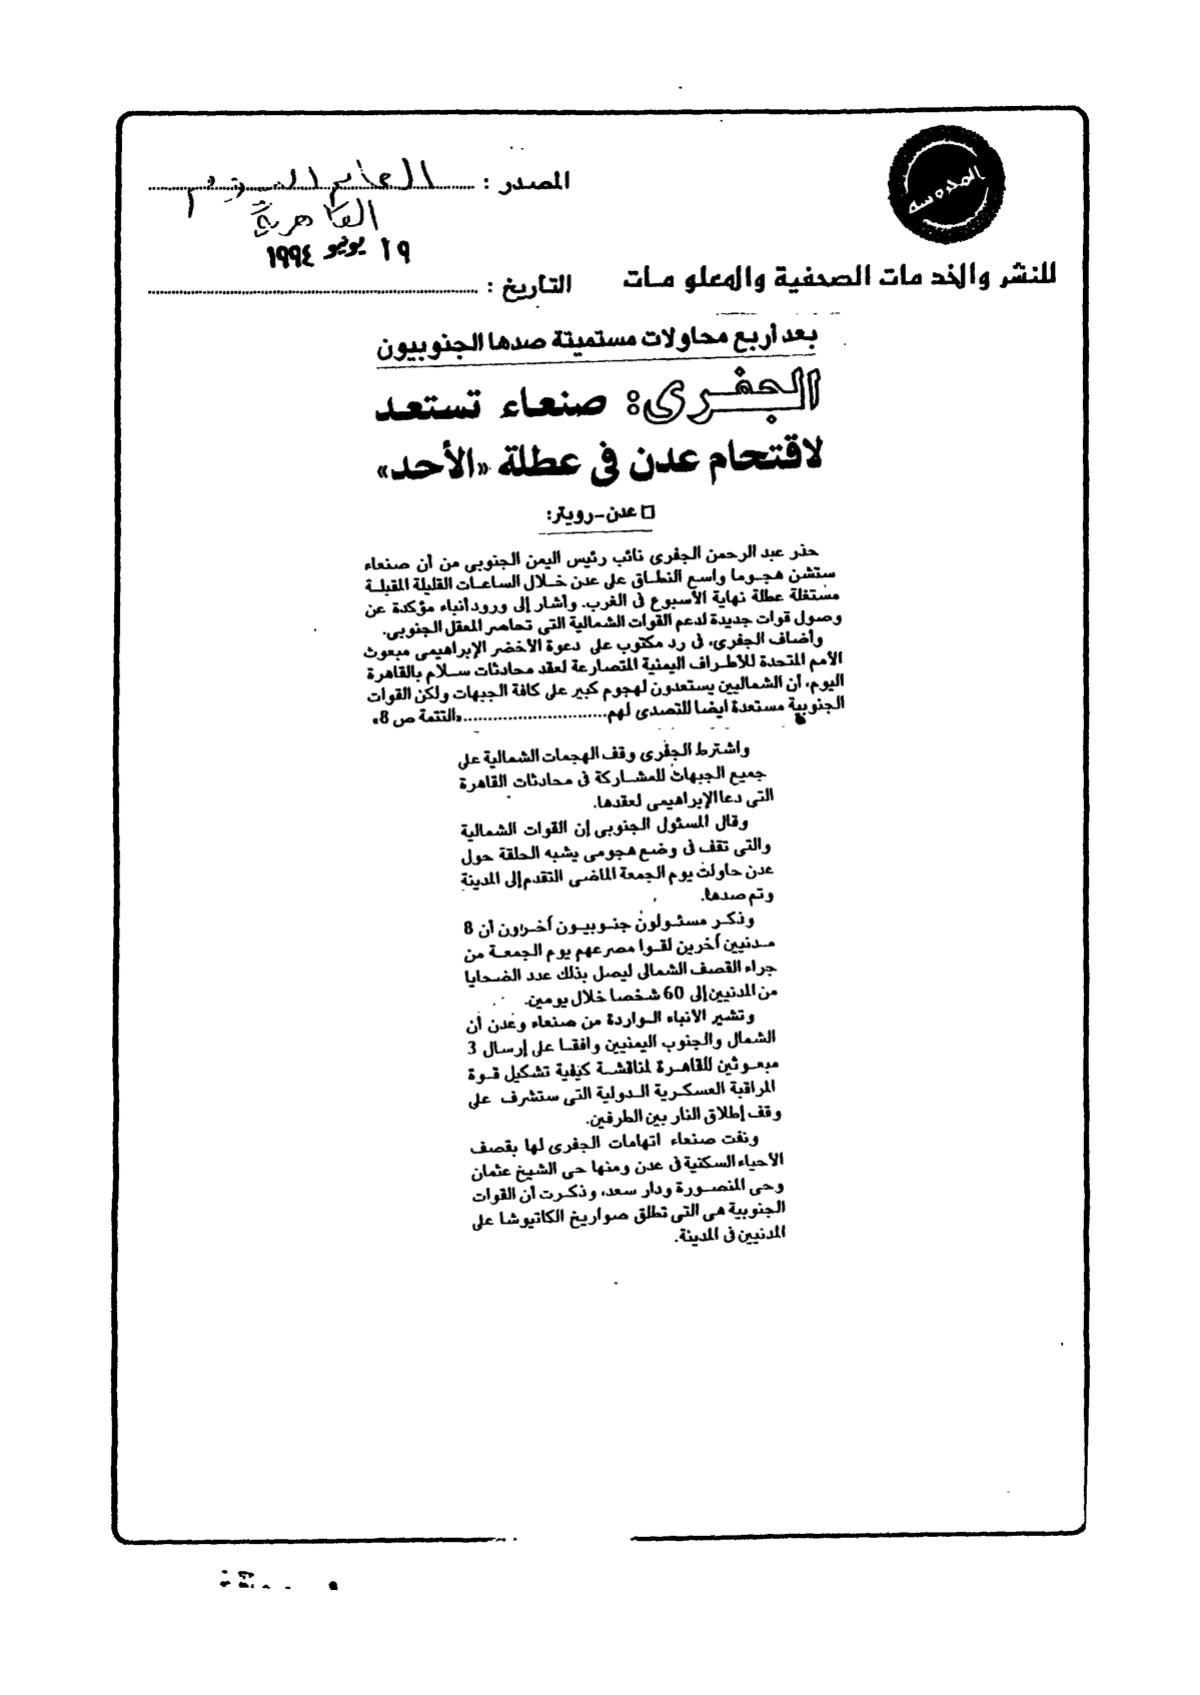 المحروسة
للنشر والخدمات الصحفية والمعلومات
المصدر : العالم اليوم
القاهرية
١٩ يونيو ١٩٩٤
التاريخ :
بعد أربع محاولات مستميتة صدها الجنوبيون
الجفرى: صنعاء تستعد
لاقتحام عدن فى عطلة «الأحد»
□ عدن-رويتر:
حذر عبد الرحمن الجفرى نائب رئيس اليمن الجنوبى من أن صنعاء
ستشن هجوما واسع النطاق على عدن خلال الساعات القليلة المقبلة
مستغلة عطلة نهاية الأسبوع فى الغرب. وأشار إلى ورود أنباء مؤكدة عن
وصول قوات جديدة لدعم القوات الشمالية التى تحاصر المعقل الجنوبى.
وأضاف الجفرى، فى رد مكتوب على دعوة الأخضر الإبراهيمى مبعوث
الأمم المتحدة للأطراف اليمنية المتصارعة لعقد محادثات سلام بالقاهرة
اليوم، أن الشماليين يستعدون لهجوم كبير على كافة الجبهات ولكن القوات
الجنوبية مستعدة أيضا للتصدى لهم..............................«التتمة ص 8»
واشترط الجفرى وقف الهجمات الشمالية على
جميع الجبهات للمشاركة فى محادثات القاهرة
التى دعا الإبراهيمى لعقدها.
وقال المسئول الجنوبى إن القوات الشمالية
والتى تقف فى وضع هجومى يشبه الحلقة حول
عدن حاولت يوم الجمعة الماضى التقدم إلى المدينة
وتم صدها.
وذكر مسئولون جنوبيون أخرون أن 8
مدنيين أخرين لقوا مصرعهم يوم الجمعة من
جراء القصف الشمالى ليصل بذلك عدد الضحايا
من المدنيين إلى 60 شخصا خلال يومين.
وتشير الأنباء الواردة من صنعاء وعدن أن
الشمال والجنوب اليمنيين وافقا على إرسال 3
مبعوثين للقاهرة لمناقشة كيفية تشكيل قوة
المراقبة العسكرية الدولية التى ستشرف على
وقف إطلاق النار بين الطرفين.
ونفت صنعاء اتهامات الجفرى لها بقصف
الأحياء السكنية فى عدن ومنها حى الشيخ عثمان
وحى المنصورة ودار سعد، وذكرت أن القوات
الجنوبية هى التى تطلق صواريخ الكاتيوشا على
المدنيين فى المدينة.